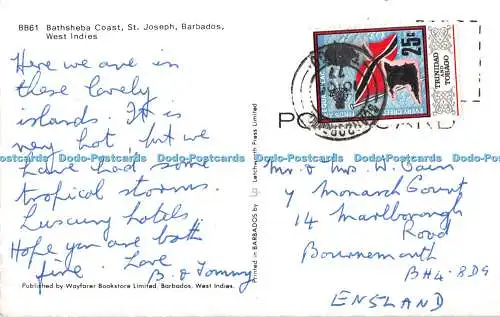 BB61 Bathsheba Coast, St. Joseph, Barbados,
West Indies
Here we are in
these lovely
islands. It is
very hot, but we
have had some
tropical storms.
Luxury hotels
Hope you are both
fine. Love
B. & Tommy
Published by Wayfarer Bookstore Limited, Barbados, West Indies.
Printed in BARBADOS by Letchworth Press Limited
25c
TRINIDAD
AND
TOBAGO
EVERY CREED
POST CARD
Mr. & Mrs. W. Gain
4 Monarch Court
14 Marlborough
Road
Bournemouth
BH4.8DG
ENGLAND
Dodo-Postcards Dodo-Postcards Dodo-Postcards Dodo-Postcards Dodo-Postcards Dodo-Postcards